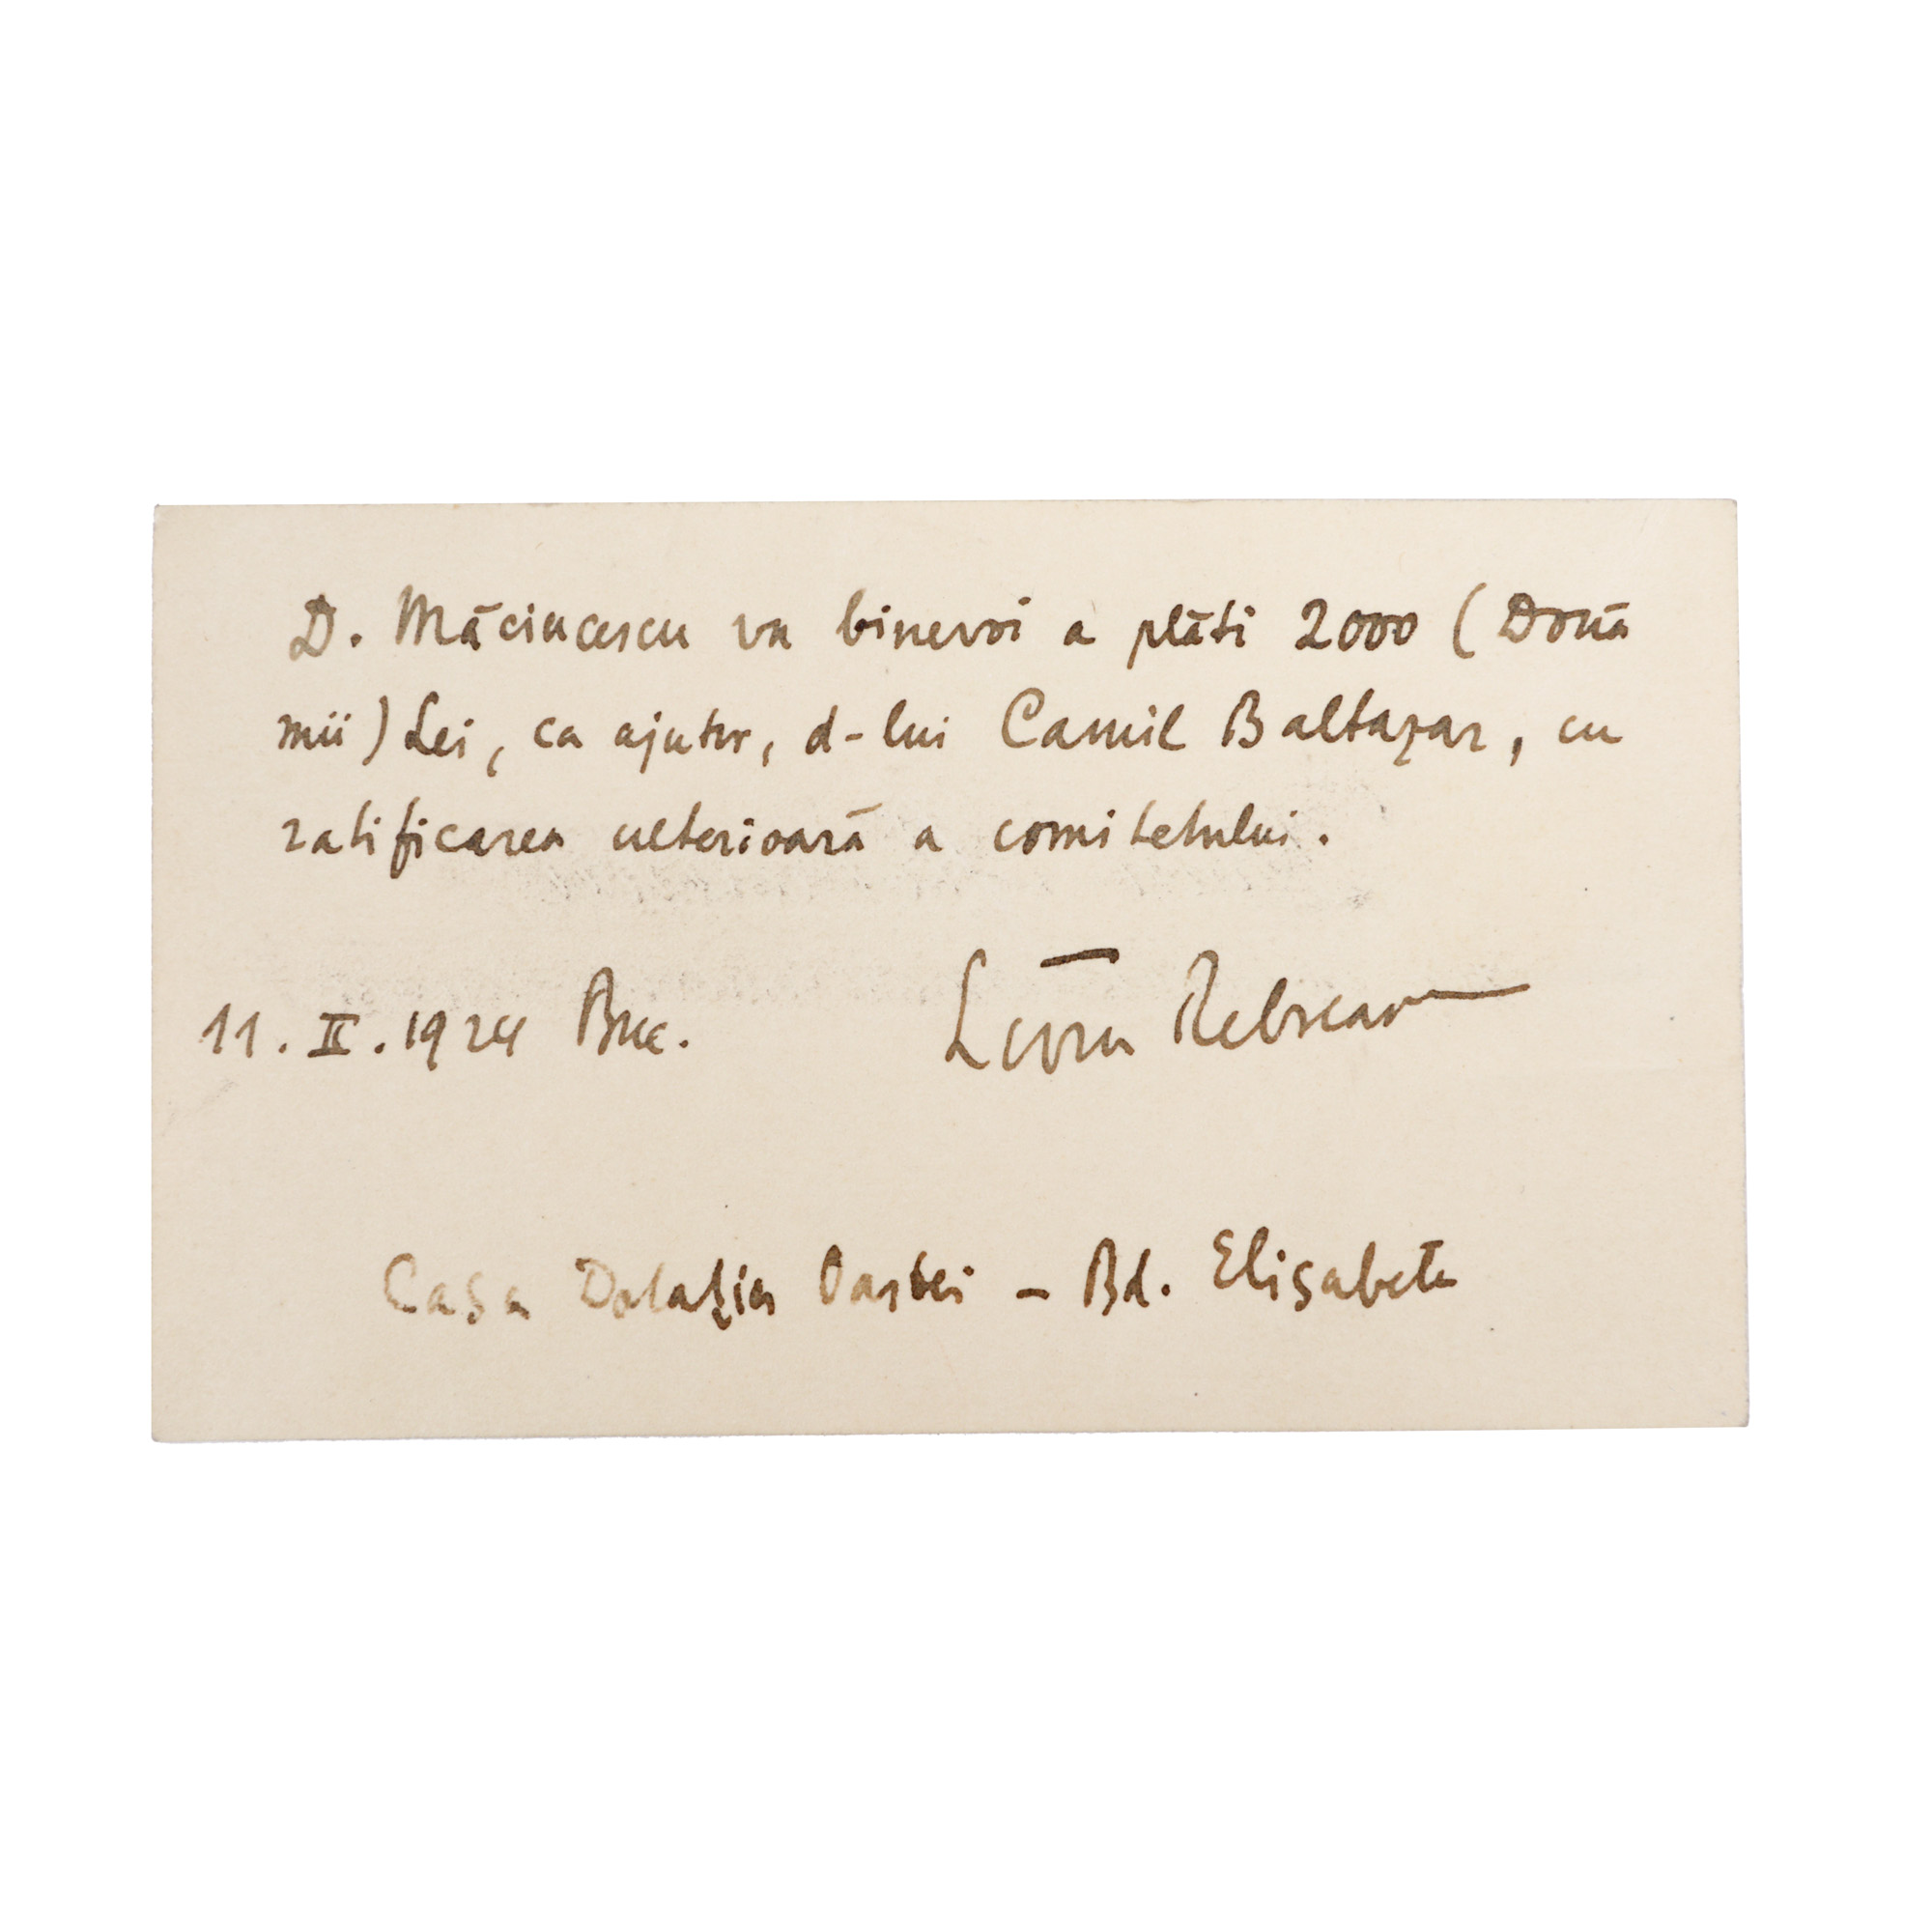 D. Măciucescu va binevoi a plăti 2000 (Două
mii) Lei, ca ajutor, d-lui Camil Baltazar, cu
ratificarea ulterioară a comitetului.
11. II. 1924 Buc. Liviu Rebreanu
Casa Dotația Oastei - Bd. Elisabeta